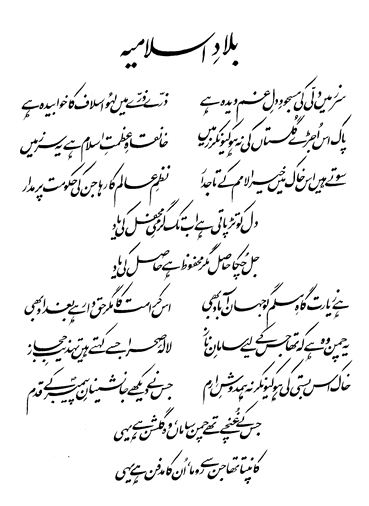 بلادِ اسلامیہ
سرزمیں دلّی کی مسجودِ دلِ غم دیدہ ہے ذرّے ذرّے میں لہو اسلاف کا خوابیدہ ہے
پاک اس اُجڑے گلستاں کی نہ ہو کیونکر زمیں خانقاہِ عظمتِ اسلام ہے یہ سرزمیں
سوتے ہیں اس خاک میں خیر الامم کے تاجدار نظمِ عالم کا رہا جن کی حکومت پر مدار
دل کو تڑپاتی ہے اب تک گرمیِ محفل کی یاد
جل چکا حاصل مگر محفوظ ہے حاصل کی یاد
ہے زیارت گاہِ مسلم گو جہان آباد بھی اس کرامت کا مگر حق دار ہے بغداد بھی
یہ چمن وہ ہے کہ تھا جس کے لیے سامانِ ناز لالۂ صحرا جسے کہتے ہیں تہذیبِ حجاز
خاک اس بستی کی ہو کیونکر نہ ہمدوشِ ارم جس نے دیکھے جانشینانِ پیمبر کے قدم
جس کے غنچے تھے چمن ساماں، وہ گلشن ہے یہی
کانپتا تھا جن سے روما، اُن کا مدفن ہے یہی